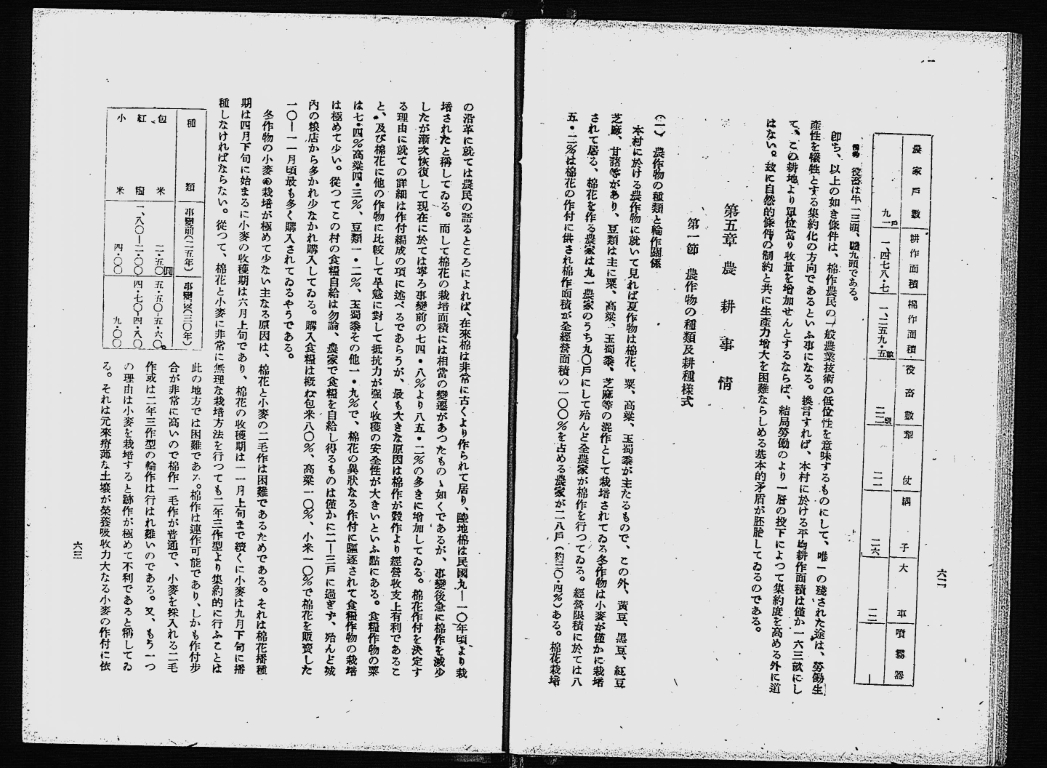 六二
農家戸數 耕作面積 棉作面積 役畜數 犂 仗 耩子 大車 噴霧器
九一戸 一、四七八・七 一、二五九・五畝 二二頭 二二 二六 二二
備考 役畜は牛一三頭、驢九頭である。
卽ち、以上の如き條件は、棉作農民の一般農業技術の低位性を意味するものにして、唯一の殘された途は、勞働生
產性を犧牲とする集約化の方向であるといふ事になる。換言すれば、本村に於ける平均耕作面積は僅か一六三畝にし
て、この耕地より單位當り收量を增加せんとするならば、結局勞働のより一層の投下によつて集約度を高める外に道
はない。玆に自然的條件の制約と共に生產力增大を困難ならしめる基本的矛盾が胚胎してゐるのである。
第五章 農耕事情
第一節 農作物の種類及耕種樣式
(一) 農作物の種類と輪作關係
本村に於ける農作物に就いて見れば夏作物は棉花、粟、高粱、玉蜀黍が主たるもので、この外、黃豆、黑豆、紅豆
芝麻、甘藷等があり、豆類は主に粟、高粱、玉蜀黍、芝麻等の混作として栽培されてゐる冬作物は小麥が僅かに栽培
されて居る、棉花を作る農家は九一農家のうち九〇戸にして殆んど全農家が棉作を行つてゐる。經營面積に於ては八
五・二%は棉花の作付に供され棉作面積が全經營面積の一〇〇%を占める農家が二八戸(約三〇・四%)ある。棉花栽培
の沿革に就ては農民の語るところによれば、在來棉は非常に古くより作られて居り、陸地棉は民國九—一〇年頃より栽
培されたと稱してゐる。而して棉花の栽培面積には相當の變遷があつたものゝ如くであるが、事變後急に棉作を減少
したが漸次恢復して現在に於ては寧ろ事變前の七四・八%より八五・二%の多きに增加してゐる。棉花作付を決定す
る理由に就ての詳細は作付編成の項に述べるであらうが、最も大きな原因は棉作が穀作より經營收支上有利であるこ
と、及び棉花に他の作物に比較して旱魃に對して抵抗力が强く收穫の安全性が大きいといふ點にある。食糧作物の粟
は七・四%高粱四・三%、豆類一・二%、玉蜀黍その他一・九%で、棉花の異狀なる作付に驅逐されて食糧作物の栽培
は極めて少い。從つてこの村の食糧自給は勿論、農家で食糧を自給し得るものは僅かに二—三戸に過ぎず、殆んど城
內の糧店から多かれ少なかれ購入してゐる。購入食糧は槪ね包米八〇%、高粱一〇%、小米一〇%で棉花を販賣した
一〇—一一月頃最も多く購入されてゐるそうである。
冬作物の小麥の栽培が極めて少ない主なる原因は、棉花と小麥の二毛作は困難であるためである。それは棉花播種
期は四月下旬に始まるに小麥の收穫期は六月上旬であり、棉花の收穫期は一一月上旬まで續くに小麥は九月下旬に播
種しなければならない。從つて、棉花と小麥に非常に無理な栽培方法を行つても二年三作型より集約的に行ふことは
種類 事變前(二五年) 事變後(三〇年)
包米 二・五〇圓 五・五〇—五・六〇
紅糧 一、八〇—二・〇〇 四・七〇—四・八〇
小米 四・〇〇 九・〇〇
此の地方では困難である。棉作は連作可能であり、しかも作付步
合が非常に高いので棉作一毛作が普通で、小麥を採入れる二毛
作或は二年三作型の輪作は行はれ難いのである。又、もう一つ
の理由は小麥を栽培すると跡作が極めて不利であると稱してゐ
る。それは元來瘠薄な土壤が榮養吸收力大なる小麥の作付に依
六三